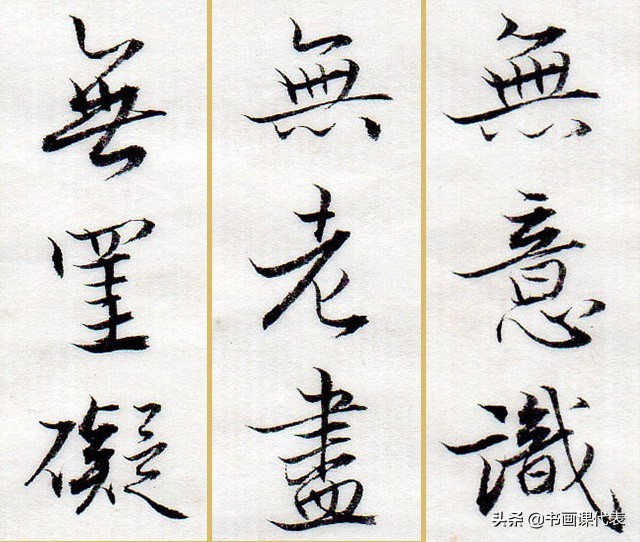 無意識
無老盡
無罣礙
头条 @书画课代表